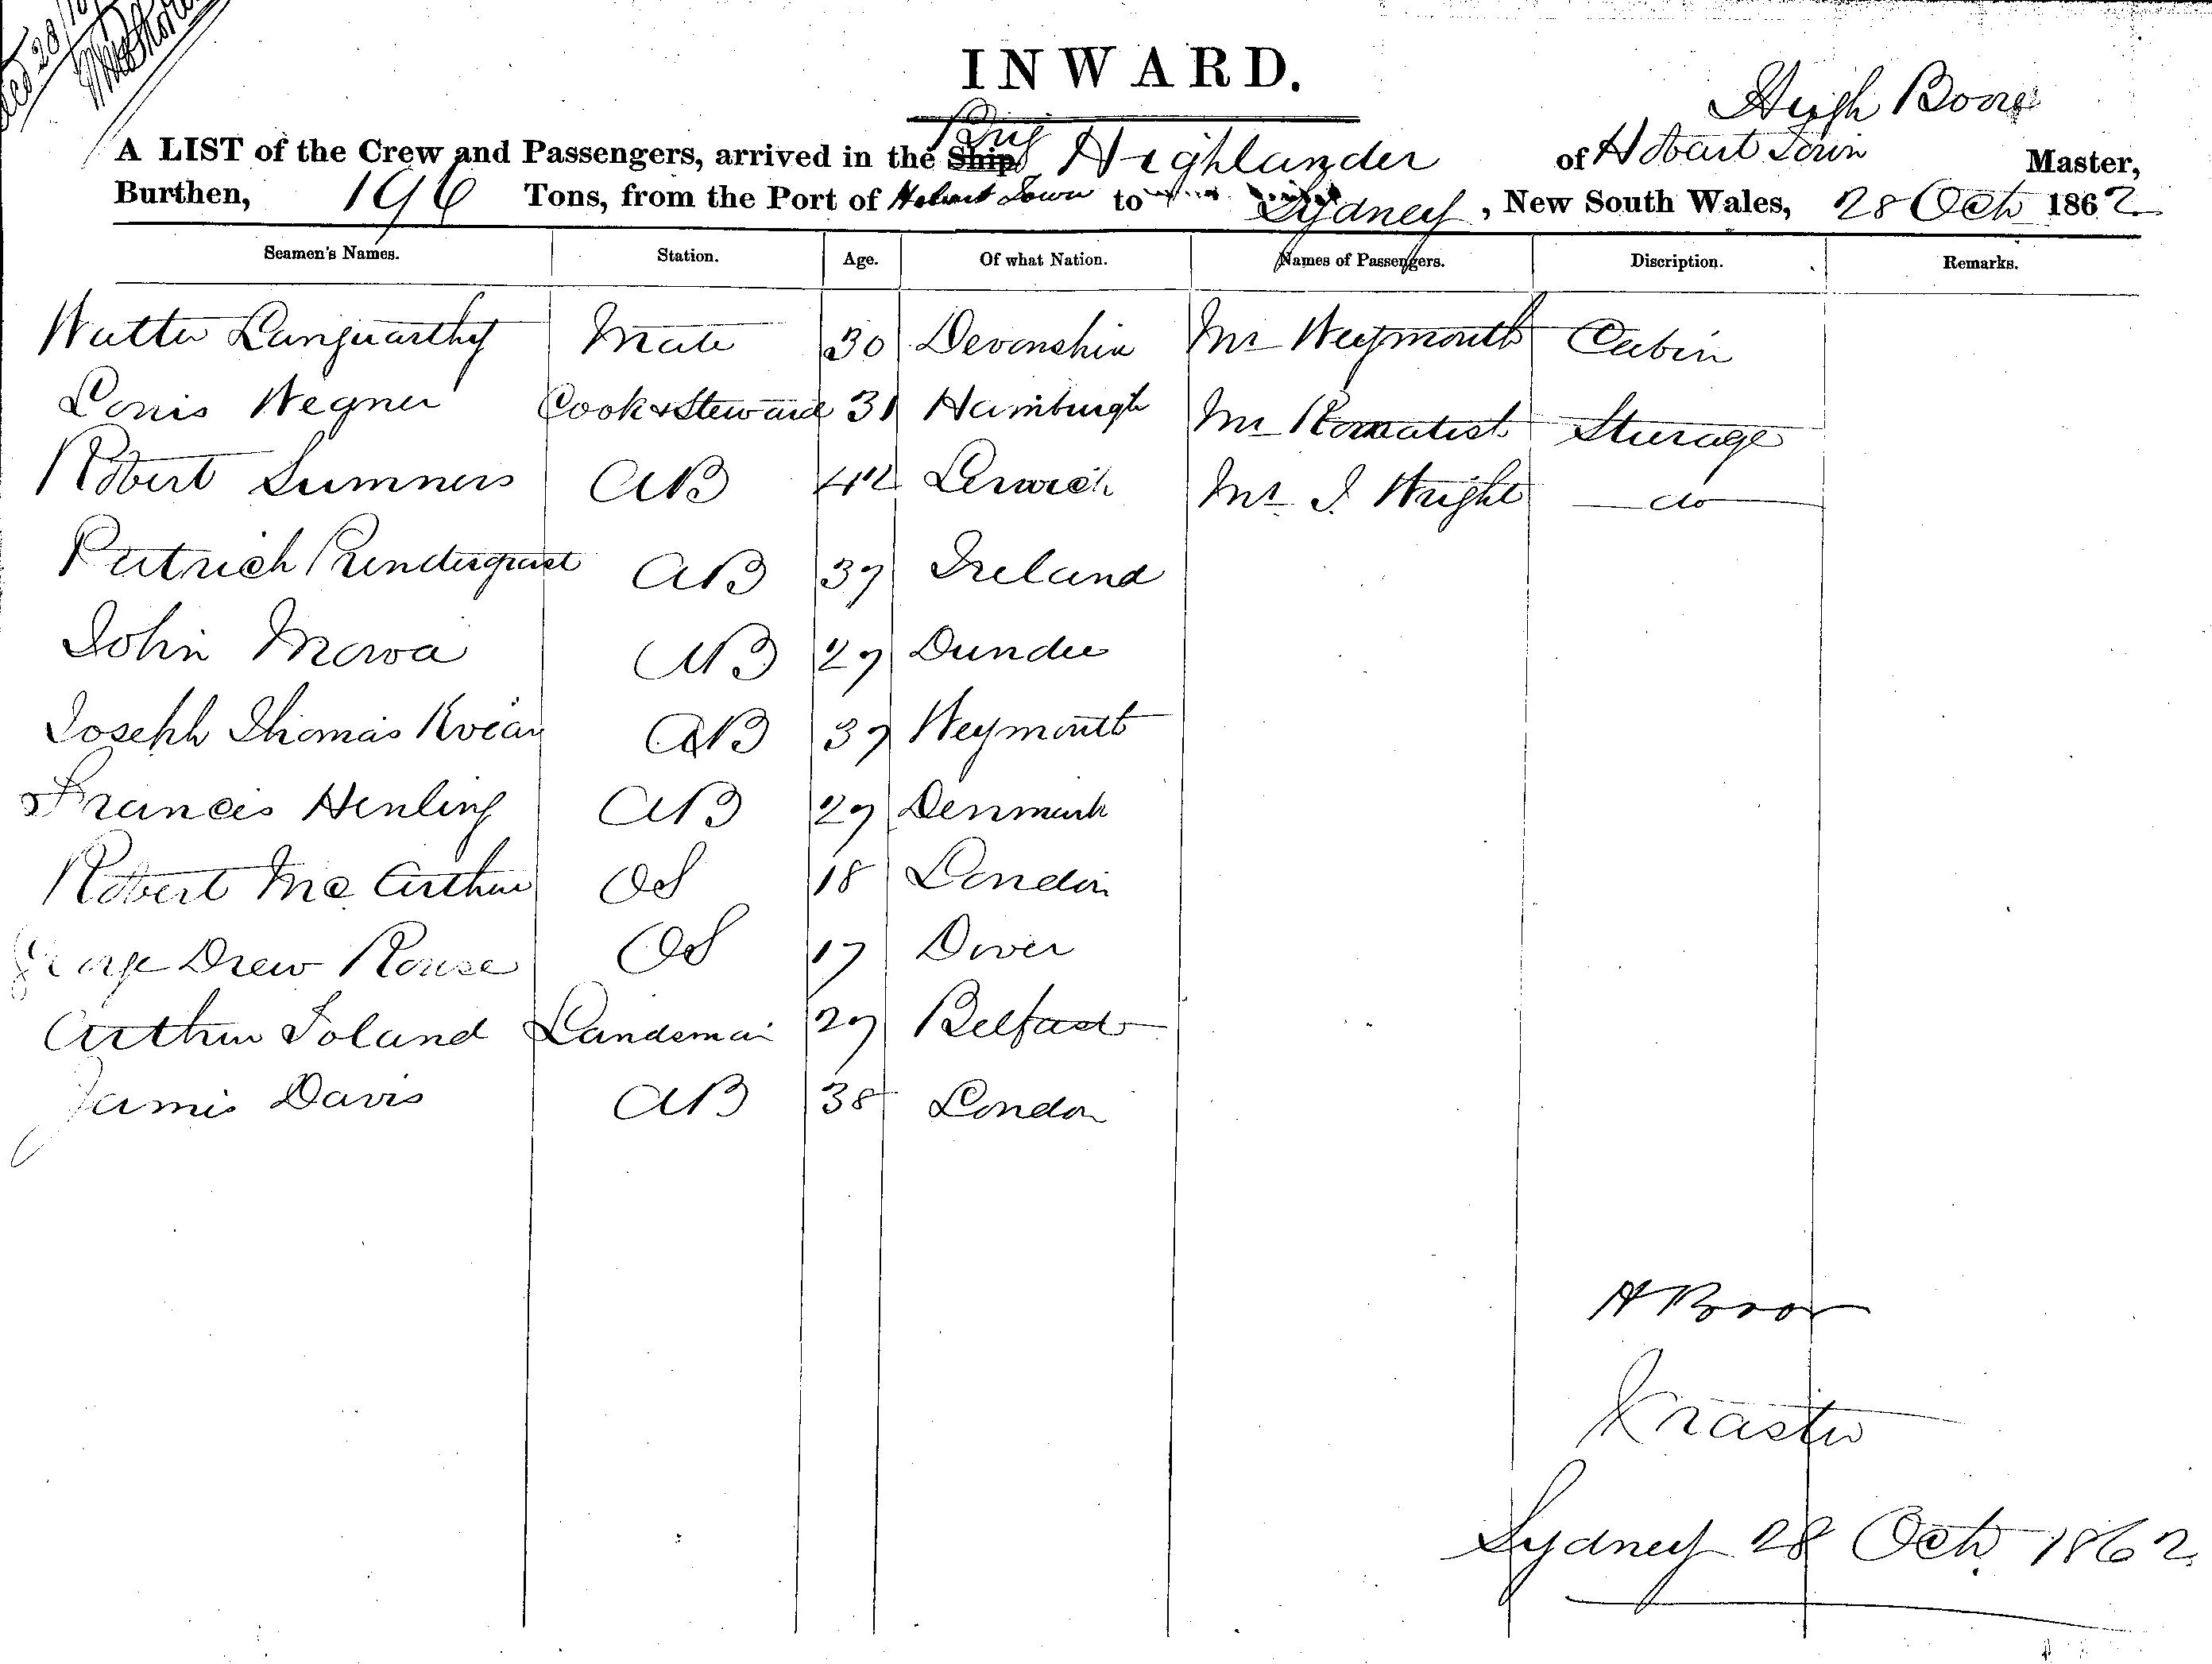 INWARD.
Hugh Boon
A LIST of the Crew and Passengers, arrived in the Ship Brig Highlander of Hobart Town Master,
Burthen, 196 Tons, from the Port of Hobart Town to Sydney, New South Wales, 28 Oct 1862
Seamen's Names. Station. Age. Of what Nation. Names of Passengers. Discription. Remarks.
Walter Mate 30 Devonshire Mr Weymouth Cabin
Louis Wegner Cook & Steward 31 Hamburgh Mr Sturage
Robert Sumners AB 42 Lerwick Mr J. Wright do
Patrick Prendergrast AB 37 Ireland
John Mowa AB 27 Dundee
Joseph Thomas AB 37 Weymouth
Francis Henling AB 27 Denmark
Robert Mc Arthur OS 18 London
George Drew Rouse OS 17 Dover
Arthur Toland Landsman 27 Belfast
James Davis AB 38 London
H Boon
Master
Sydney 28 Oct 1862